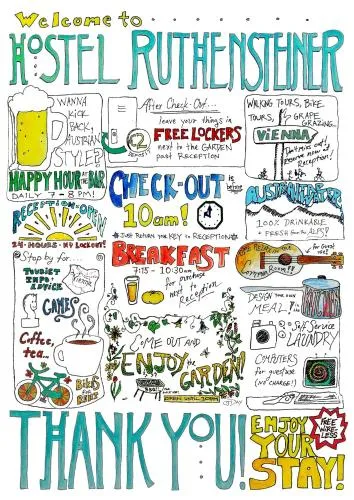 Welcome to
HOSTEL RUTHENSTEINER
WANNA
KICK
BACK,
AUSTRIAN
STYLE?
HAPPY HOUR at the BAR
DAILY 7-8 PM!
RECEPTION OPEN
24-HOURS - NO LOCKOUT!
Stop by for...
TOURIST
INFO +
ADVICE
GAMES
Coffee,
tea...
BIKES
After Check-Out...
leave your things in
FREE LOCKERS
next to the GARDEN
past RECEPTION
CHECK-OUT
is before
10am!
JUST RETURN the KEY to RECEPTION
BREAKFAST
7:15 - 10:30am
for purchase
next to
Reception
COME OUT AND
ENJOY
the GARDEN!
OPEN UNTIL 10PM
WALKING TOURS, BIKE
TOURS,
GRAPE
GRAZING...
VIENNA
Don't miss out!
reserve now @
Reception!
100% DRINKABLE
+ FRESH from the ALPS!
for Guest use!
COMMON ROOM!!
DESIGN YOUR OWN
MEAL!
Self Service
LAUNDRY
COMPUTERS
for guest use
(NO CHARGE!)
THANK YOU!
ENJOY
YOUR
STAY!
FREE
WIRE-
LESS